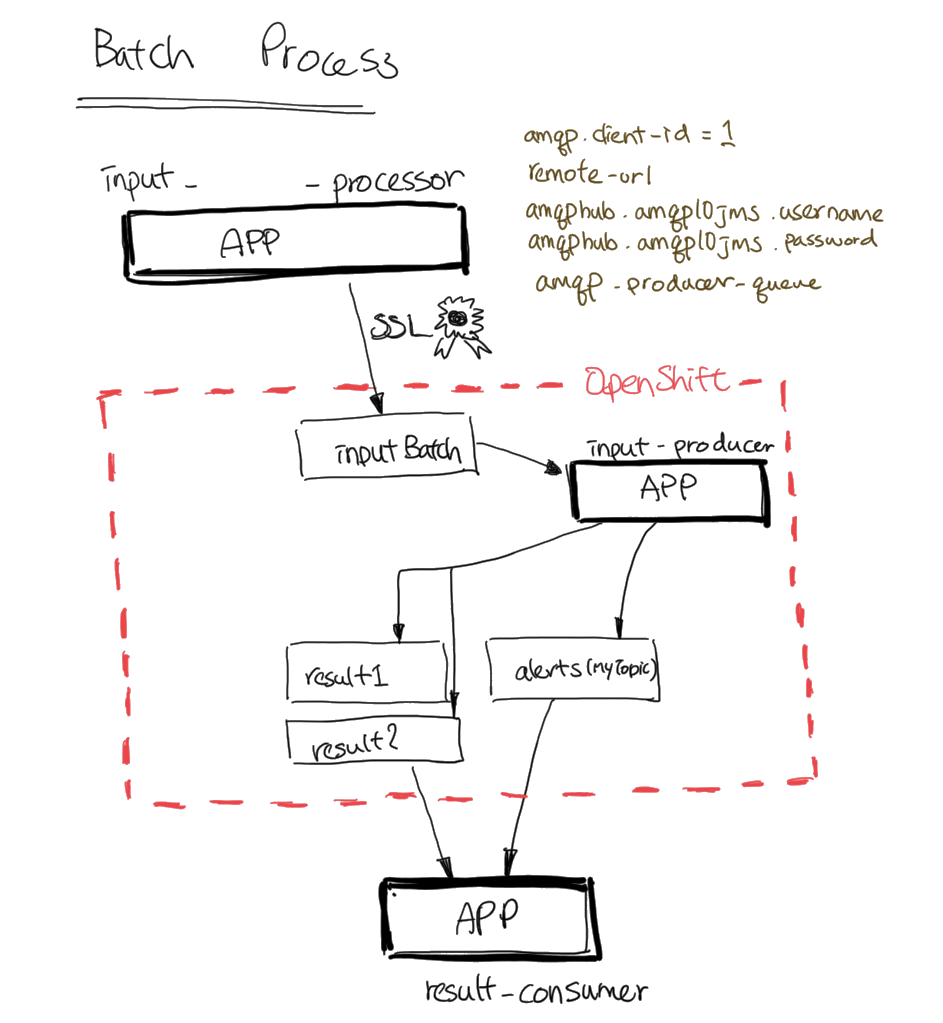 Batch Process
input - - processor
APP
amqp.client-id = 1
remote-url
amqphub.amqp10jms.username
amqphub.amqp10jms.password
amqp-producer-queue
SSL
OpenShift
inputBatch
input-producer
APP
result1
alerts(MyTopic)
result2
APP
result-consumer